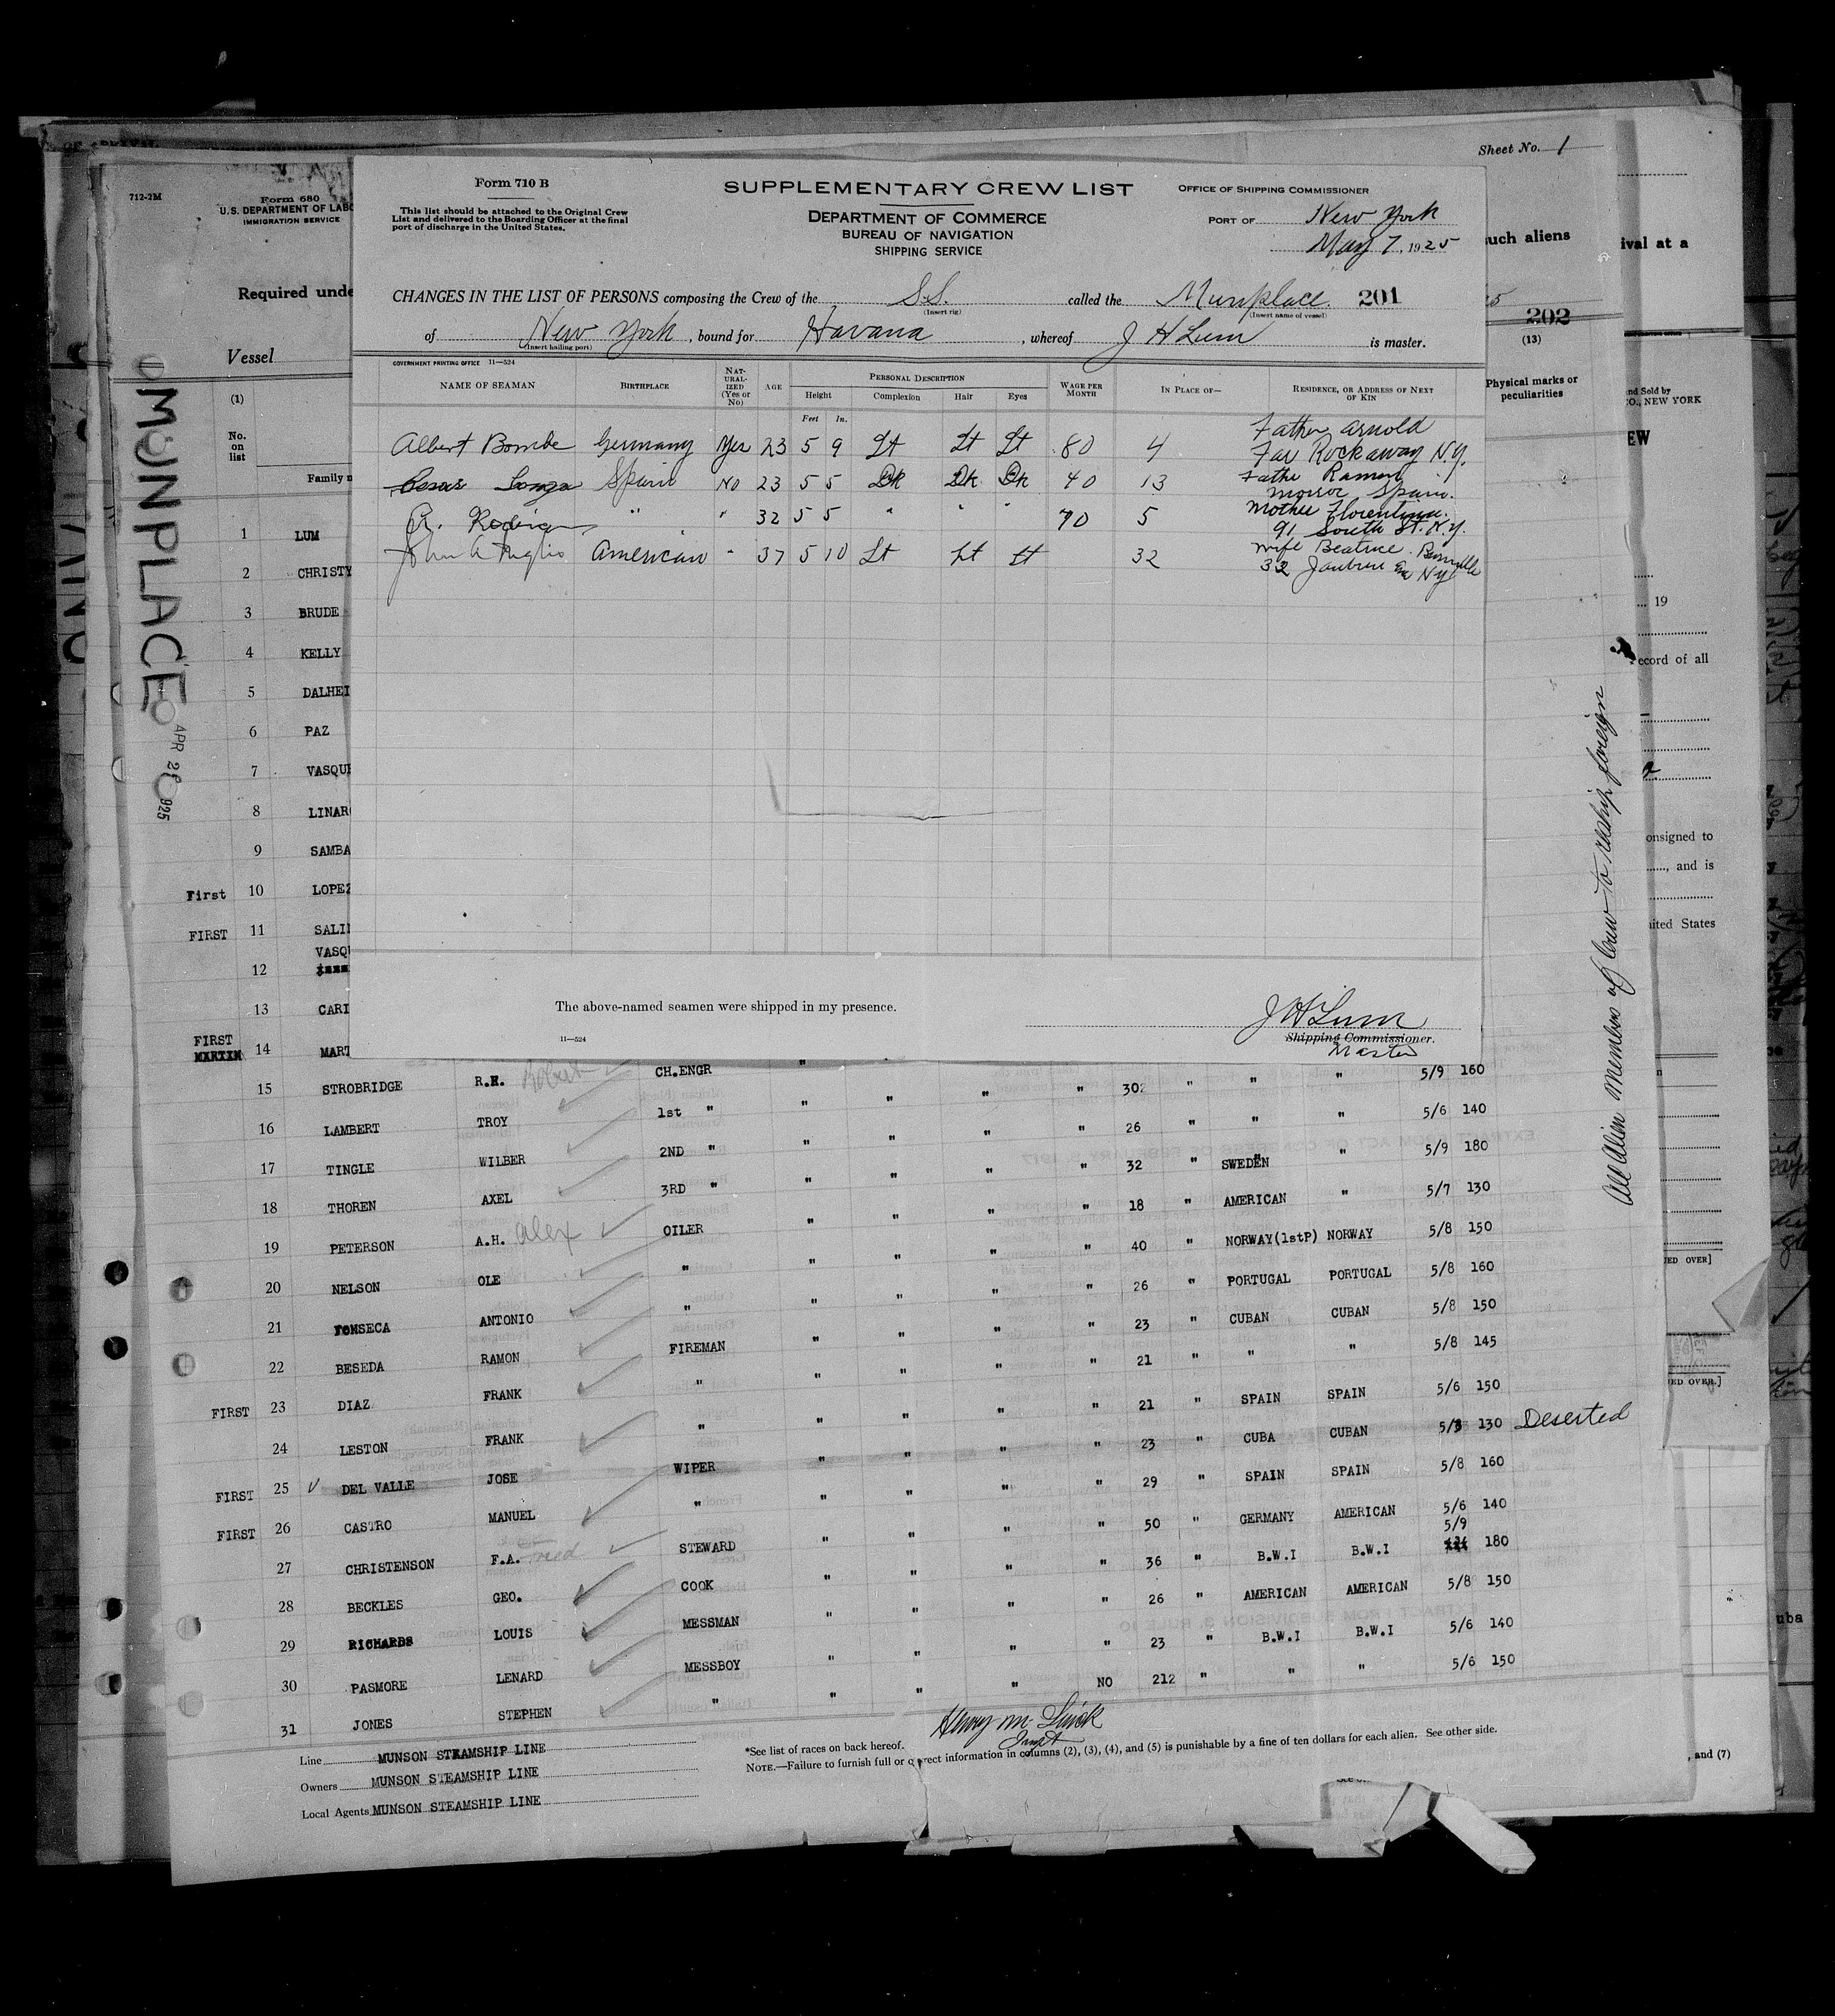 Sheet No. 1
712-2M
Form 680
U.S. DEPARTMENT OF LABO
IMMIGRATION SERVICE
Required unde
Vessel
MUNPLACE
APR 2 1925
Form 710 B
This list should be attached to the Original Crew
List and delivered to the Boarding Officer at the final
port of discharge in the United States.
SUPPLEMENTARY CREW LIST
DEPARTMENT OF COMMERCE
BUREAU OF NAVIGATION
SHIPPING SERVICE
OFFICE OF SHIPPING COMMISSIONER
PORT OF New York
May 7, 1925
CHANGES IN THE LIST OF PERSONS composing the Crew of the S.S. called the Munplace. 201
(Insert rig) (Insert name of vessel)
of New York, bound for Havana, whereof J H Lum is master.
(Insert hailing port)
GOVERNMENT PRINTING OFFICE 11—524
NAME OF SEAMAN BIRTHPLACE NAT-URAL-IZED (Yes or No) AGE PERSONAL DESCRIPTION WAGE PER MONTH IN PLACE OF— RESIDENCE, OR ADDRESS OF NEXT OF KIN
Height Complexion Hair Eyes
Feet In.
Father Arnold
Albert Bombe Germany Yes 23 5 9 Lt Lt Lt 80 4 Far Rockaway N.Y.
Spain No 23 5 5 Dk Dk Dk 40 13 Father Ramon
Spain.
R. " " 32 5 5 " " " 70 5 Mother Florentina.
91 South St. N.Y.
John A American " 37 5 10 Lt Lt Lt 32 wife Beatrice
32 Ave NY
The above-named seamen were shipped in my presence.
J H Lum
Shipping Commissioner.
Master
11—524
such aliens
202
(13)
Physical marks or
peculiarities
ival at a
and Sold by
CO., NEW YORK
EW
19
ecord of all
onsigned to
, and is
ited States
ED OVER]
ED OVER.]
uba
, and (7)
All Alien members of crew to reship foreign
(1)
No.
on
list
Family n
1 LUM
2 CHRISTY
3 BRUDE
4 KELLY
5 DALHEI
6 PAZ
7 VASQUE
8 LINAR
9 SAMBA
First 10 LOPEZ
FIRST 11 SALI
VASQU
12
13 CARI
FIRST
14 MART
15 STROBRIDGE R.H. Robert CH.ENGR " 302 " " " 5/9 160
16 LAMBERT TROY 1st " " " " " 26 " " " 5/6 140
17 TINGLE WILBER 2ND " " " " " 32 " SWEDEN " 5/9 180
18 THOREN AXEL 3RD " " " " " 18 " AMERICAN " 5/7 130
19 PETERSON A.H. Alex OILER " " " " 40 " NORWAY(1stP) NORWAY 5/8 150
20 NELSON OLE " " " " " 26 " PORTUGAL PORTUGAL 5/8 160
21 FONSECA ANTONIO " " " " " 23 " CUBAN CUBAN 5/8 150
22 BESEDA RAMON FIREMAN " " " " 21 " " " 5/8 145
FIRST 23 DIAZ FRANK " " " " " 21 " SPAIN SPAIN 5/6 150
24 LESTON FRANK " " " " " 23 " CUBA CUBAN 5/3 130 Deserted
FIRST 25 DEL VALLE JOSE WIPER " " " " 29 " SPAIN SPAIN 5/8 160
FIRST 26 CASTRO MANUEL " " " " " 50 " GERMANY AMERICAN 5/6 140
5/9
27 CHRISTENSON F.A. Fred STEWARD " " " " 36 " B.W.I B.W.I 180
28 BECKLES GEO. COOK " " " " 26 " AMERICAN AMERICAN 5/8 150
29 RICHARDS LOUIS MESSMAN " " " " 23 " B.W.I B.W.I 5/6 140
30 PASMORE LENARD MESSBOY " " " NO 212 " " " 5/6 150
31 JONES STEPHEN " " " "
Line MUNSON STEAMSHIP LINE
Owners MUNSON STEAMSHIP LINE
Local Agents MUNSON STEAMSHIP LINE
*See list of races on back hereof.
NOTE.—Failure to furnish full or correct information in columns (2), (3), (4), and (5) is punishable by a fine of ten dollars for each alien. See other side.